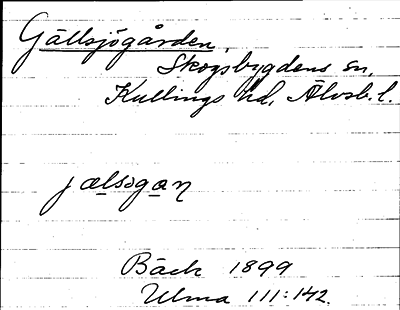 Gällsjögården,
Skogsbygdens sn,
Kullings hd, Älvsb. l.
jælsögaṇ
Bäck 1899
Ulma 111:142.